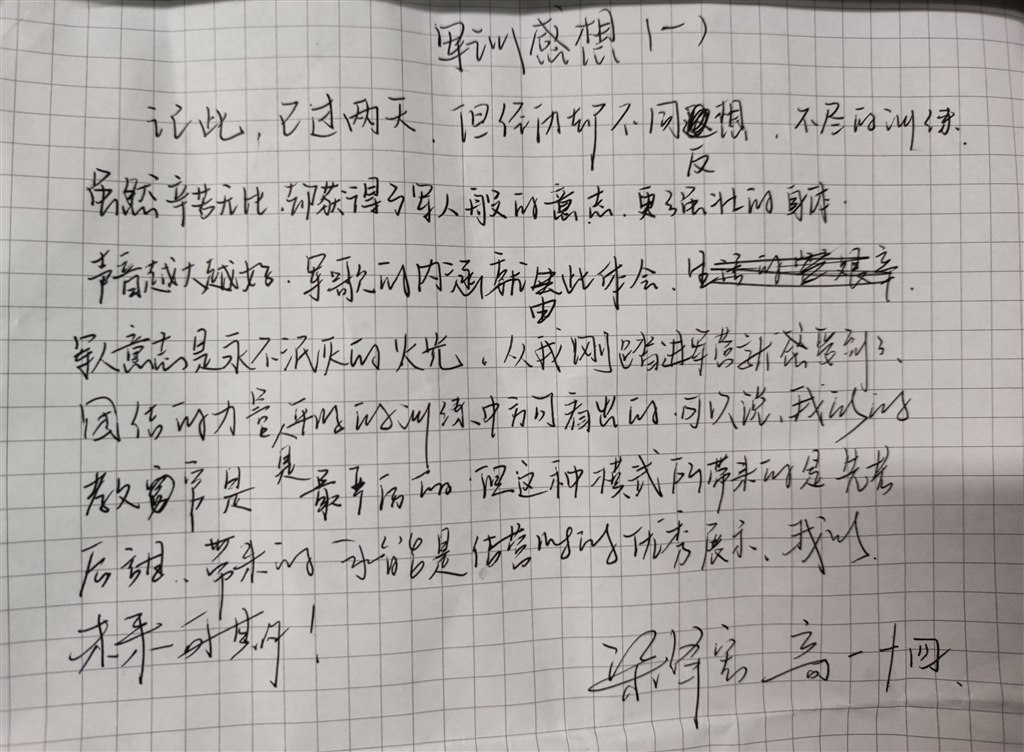 军训感想(一)
记此,已过两天,但经历却不同想反,不尽的训练.
虽然辛苦无比,却获得了军人般的意志,更强壮的身体.
声音越大越好.军歌的内涵就由此体会.
军人意志是永不泯灭的火光,从我刚踏进军营就感受到了.
团结的力量是平时的训练中方可看出的.可以说,我们的
教官常是最严厉的.但这种模式所带来的是先苦
后甜.带来的可能是结营时的优秀展示.我们
未来可期!
梁泽宏 高一十四